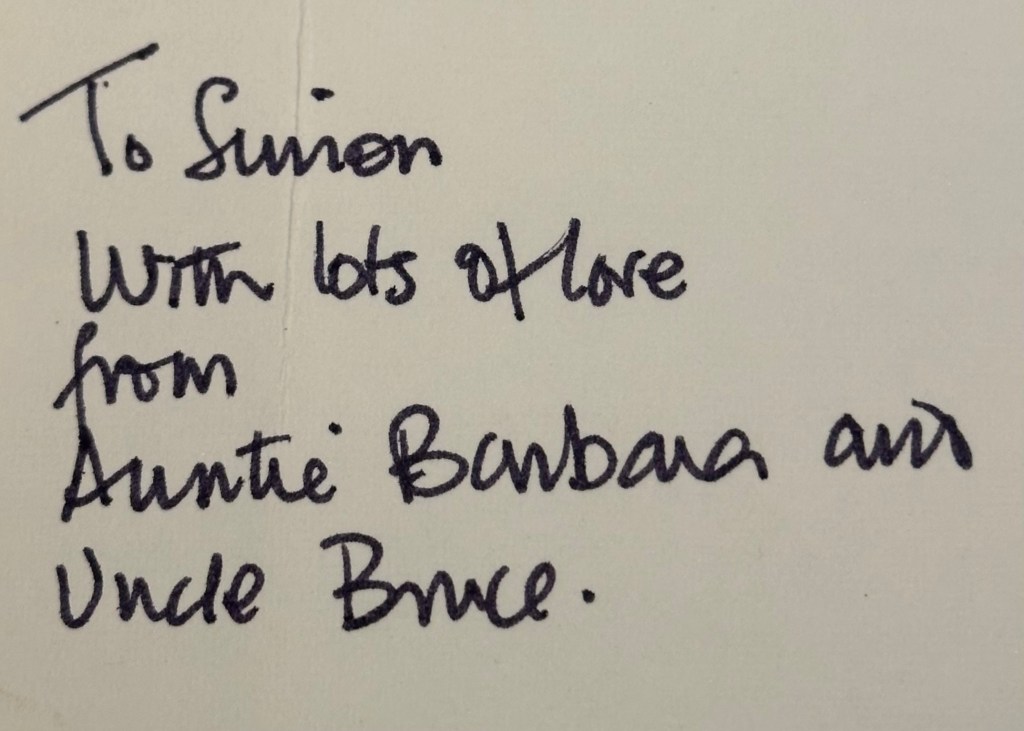 To Simon
With lots of love
from
Auntie Barbara and
Uncle Bruce.